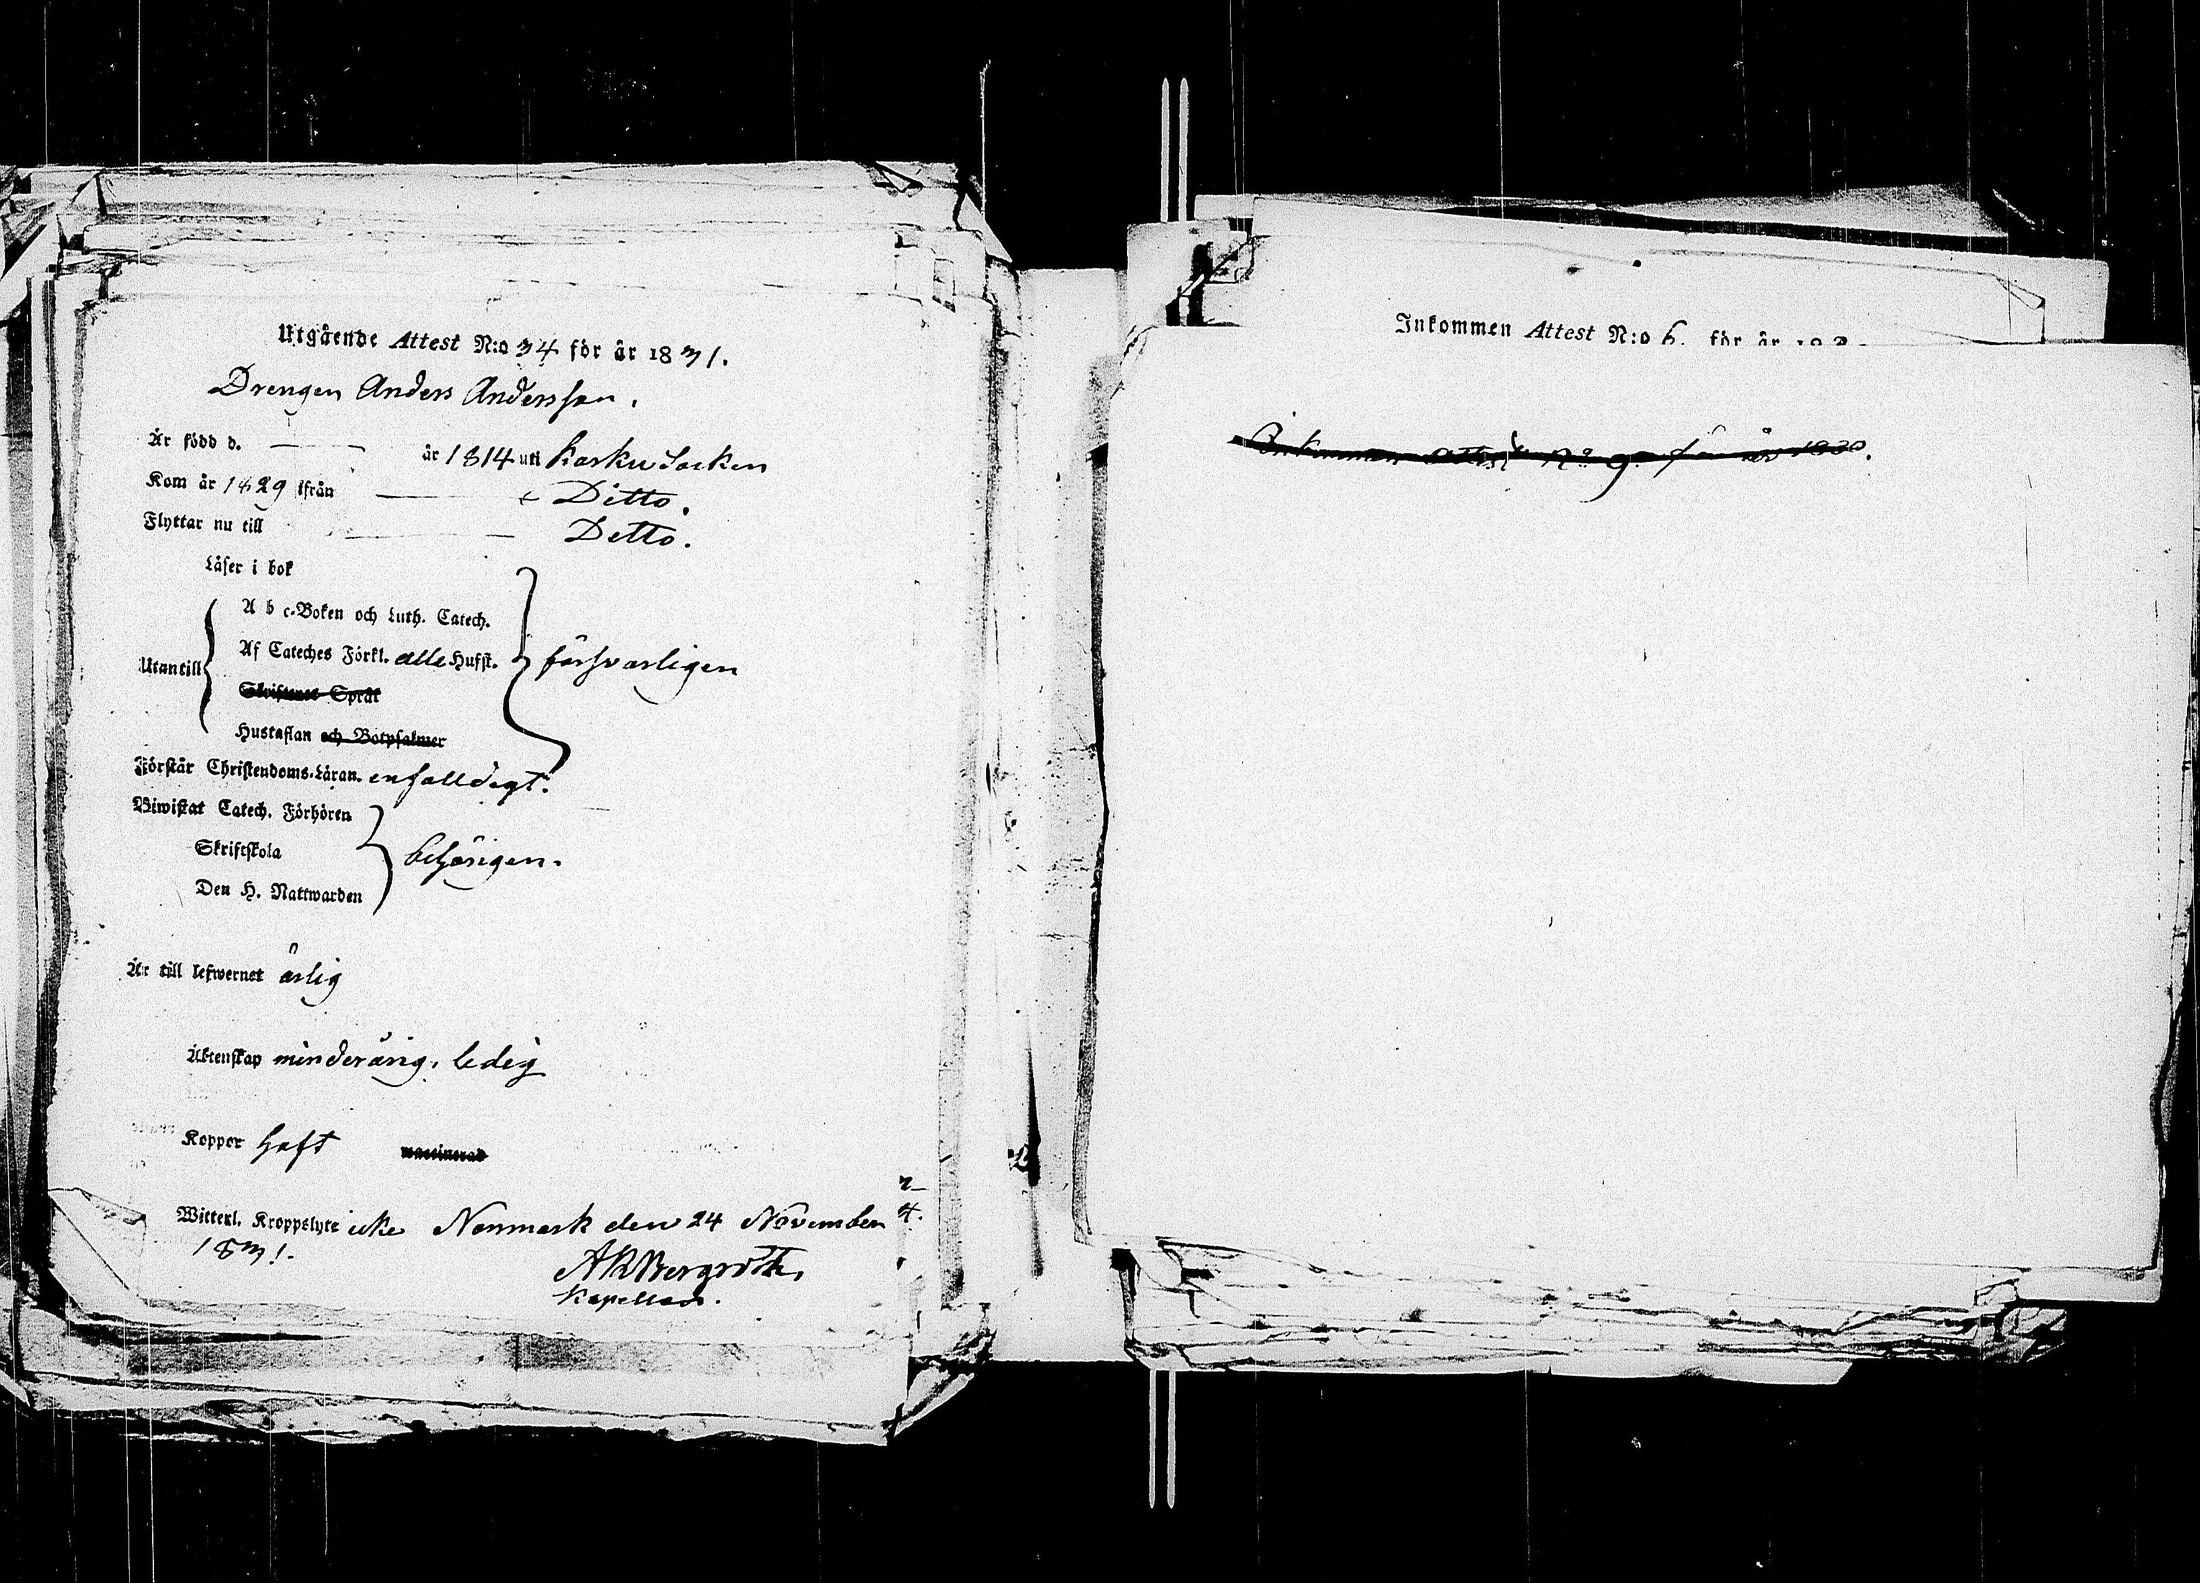 Utgående Attest N:o 34 för år 1831.
Drengen Anders Andersson.
Är född d. år 1814 uti Karku Socken
Kom år 1829 ifrån Ditto.
Flyttar nu till Detto.
Läser i bok
A b c-Boken och Luth. Catech.
Utantill Af Cateches Förkl. alle Hufst. försvarligen
Skriftenes Språk
Hustaflan och Botpsalmer
Förstår Christendoms-Läran. enfalldigt.
Biwistat Catech. Förhören
Skriftskola behörigen.
Den H. Nattwarden
Är till lefwernet ärlig
Äktenskap minderårig, ledig
Koppor haft vaccinerad
Witterl. Kroppslyte icke den 24 November
1831.
Kapellan.
Inkommen Attest N:o 6. för år
Inkommen Attest No 9 för år 1830.